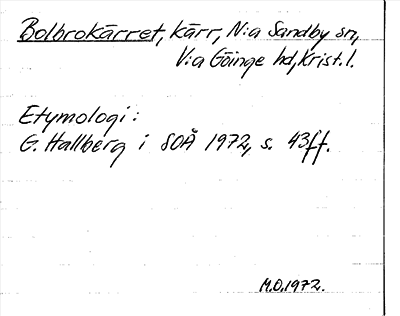 Bolbrokärret, kärr, N:a Sandby sn,
V:a Göinge hd, Krist. l.
Etymologi:
G. Hallberg i SOÅ 1972, s. 43ff.
M.O. 1972.